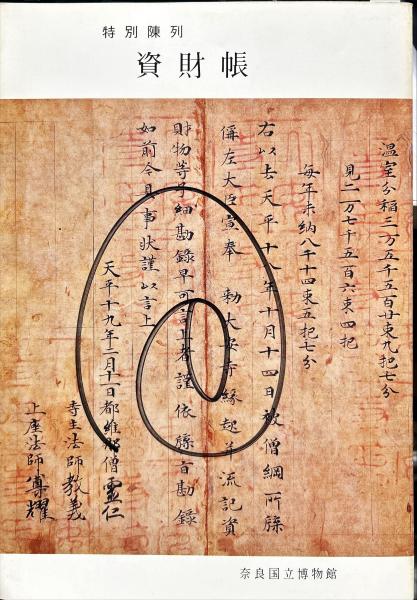 特別陳列
資財帳
温室分稲三万五千五百廿束九把七分
見二万七千五百六束四把
毎年未納八千十四束五把七分
右以去天平十八年十月十四日被僧綱所牒
偁左大臣宣奉 勅大安寺縁起并流記資
財物等子細勘録早可言上者謹依牒旨勘録
如前今具事状謹以言上
天平十九年二月十一日都維那僧靈仁
寺主法師教義
上座法師尊耀
奈良国立博物館